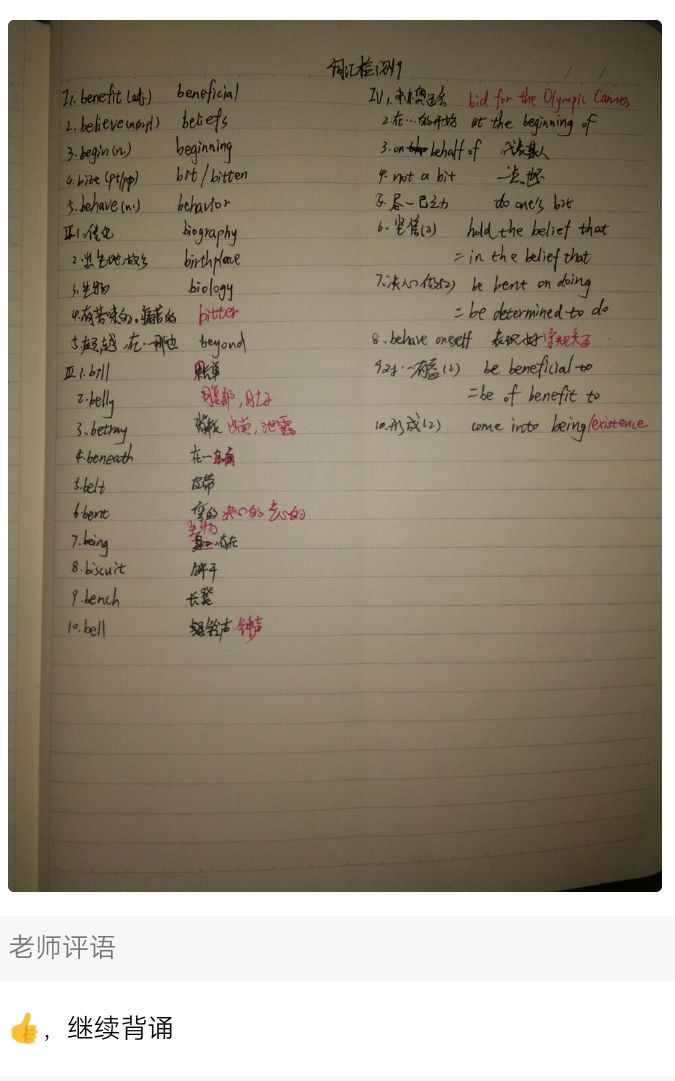 词汇检测9
I1.benefit(adj.) beneficial
2.believe(n.pl) beliefs
3.begin(n.) beginning
4.bite(pt/pp) bit/bitten
5.behave(n.) behavior
II1.传记 biography
2.出生地,故乡 birthplace
3.生物 biology
4.有苦味的,痛苦的 bitter
5.超越,在…那边 beyond
III1.bill 账单
2.belly 腹部,肚子
3.betray 背叛,泄露
4.beneath 在…
5.belt 皮带
6.bent 弯的 决心的
7.being 生物 存在
8.biscuit 饼干
9.bench 长凳
10.bell 铃声 钟声
IV1.申办奥运会 bid for the Olympic Games
2.在…的开始 at the beginning of
3.on behalf of 代表某人
4.not a bit 一点也不
5.尽一己之力 do one's bit
6.坚信(2) hold the belief that
=in the belief that
7.决心做(2) be bent on doing
=be determined to do
8.behave oneself 表现好 守规矩
9.对…有益(2) be beneficial to
=be of benefit to
10.形成(2) come into being/existence
老师评语
👍,继续背诵